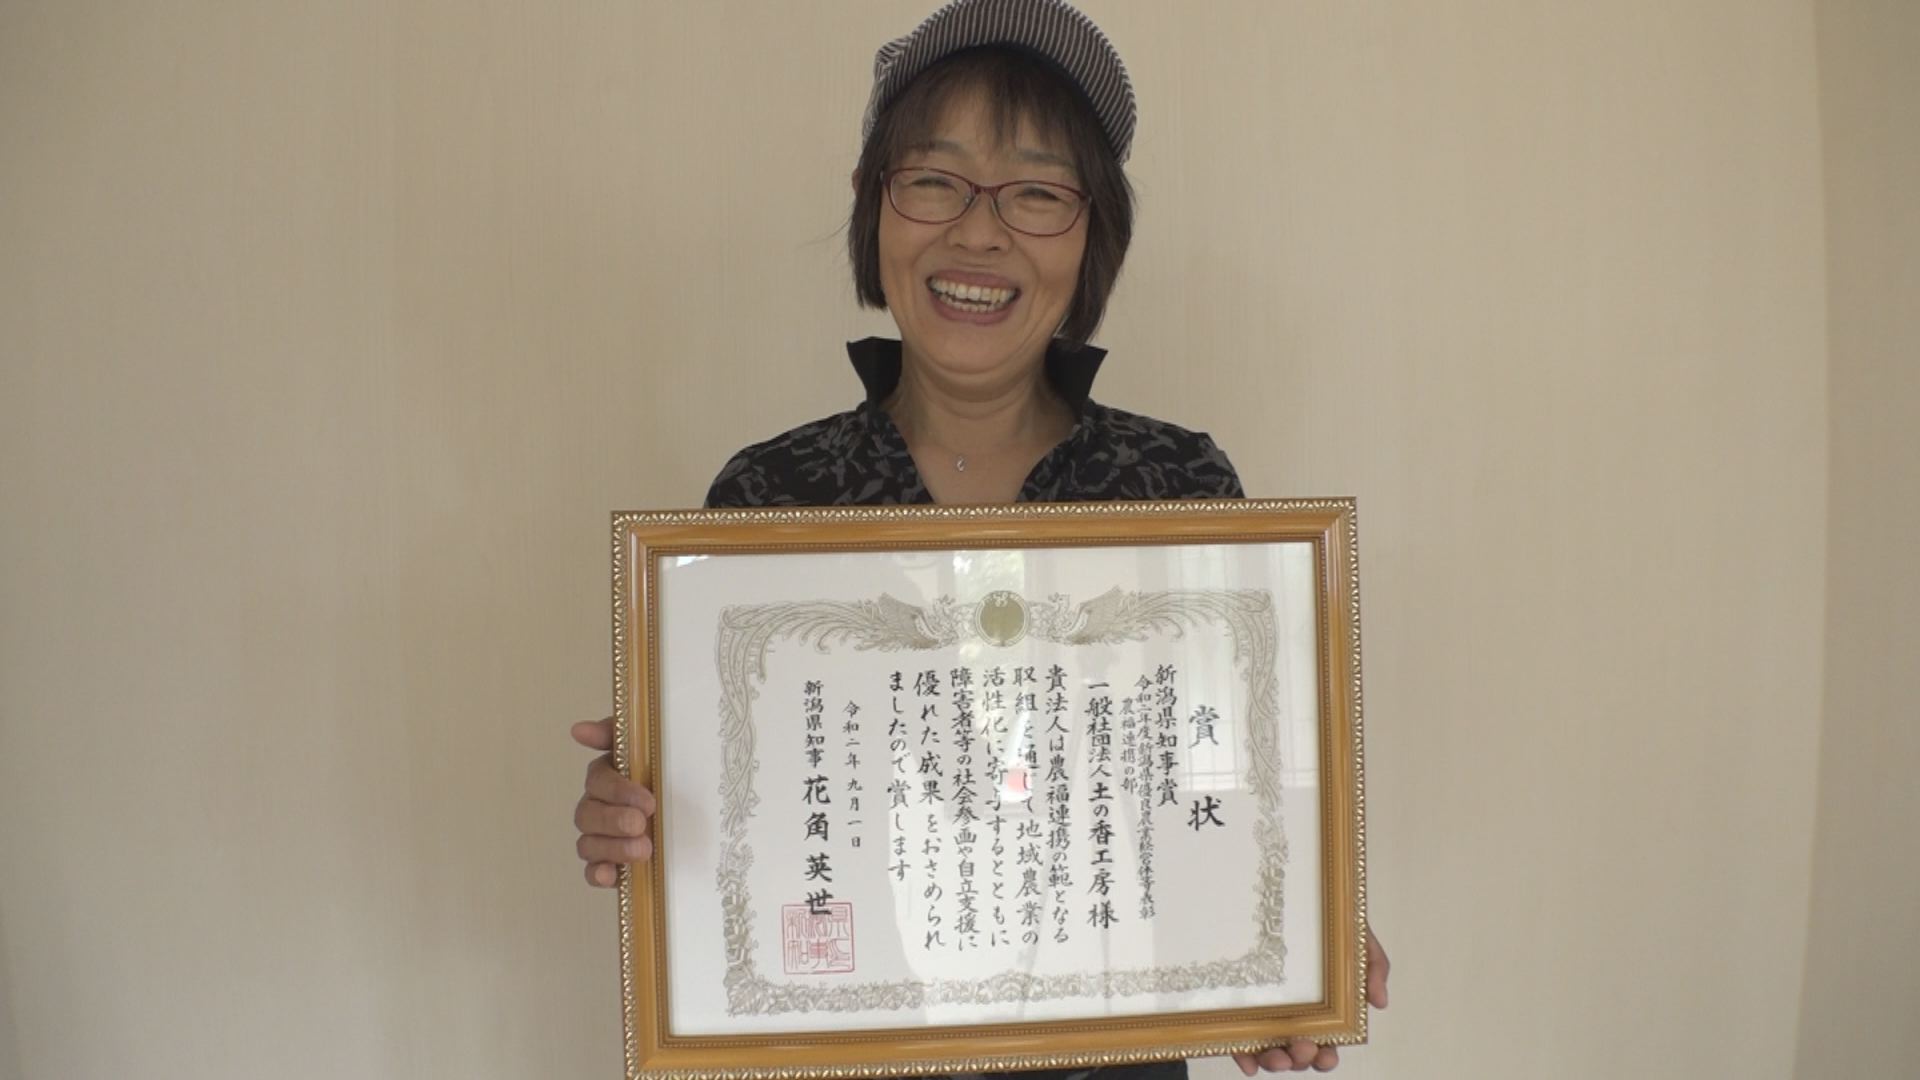 賞状
新潟県知事賞
令和二年度新潟県優良農業経営体等表彰
農福連携の部
一般社団法人土の香工房様
貴法人は農福連携の範となる
取組を通じて地域農業の
活性化に寄与するとともに
障害者等の社会参画や自立支援に
優れた成果をおさめられ
ましたので賞します
令和二年九月一日
新潟県知事 花角英世